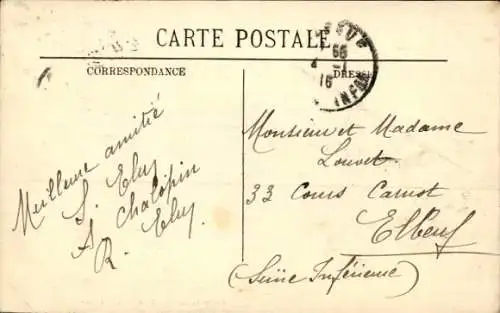 CARTE POSTALE
CORRESPONDANCE
Meilleure amitié
S. Eluy
A. Chalopin
R. Eluy
Monsieur et Madame
Louvet
33 Cours Carnot
Elbeuf
(Seine Inférieure)